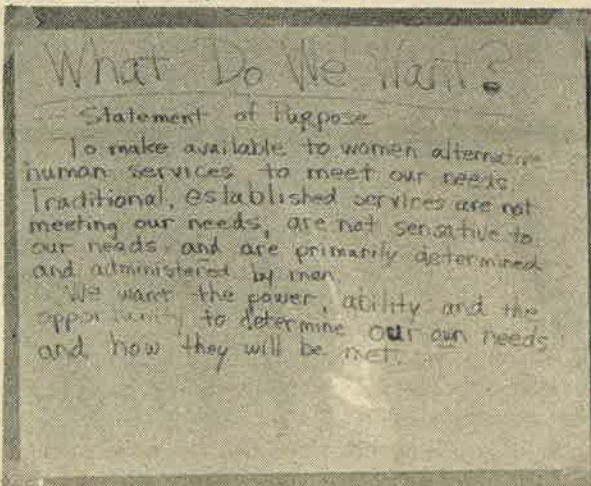 What Do We Want?
Statement of Purpose
To make available to women alternative
human services to meet our needs.
Traditional, established services are not
meeting our needs, are not sensative to
our needs and are primarily determined
and administered by men.
We want the power, ability and the
opportunity to determine our own needs
and how they will be met.